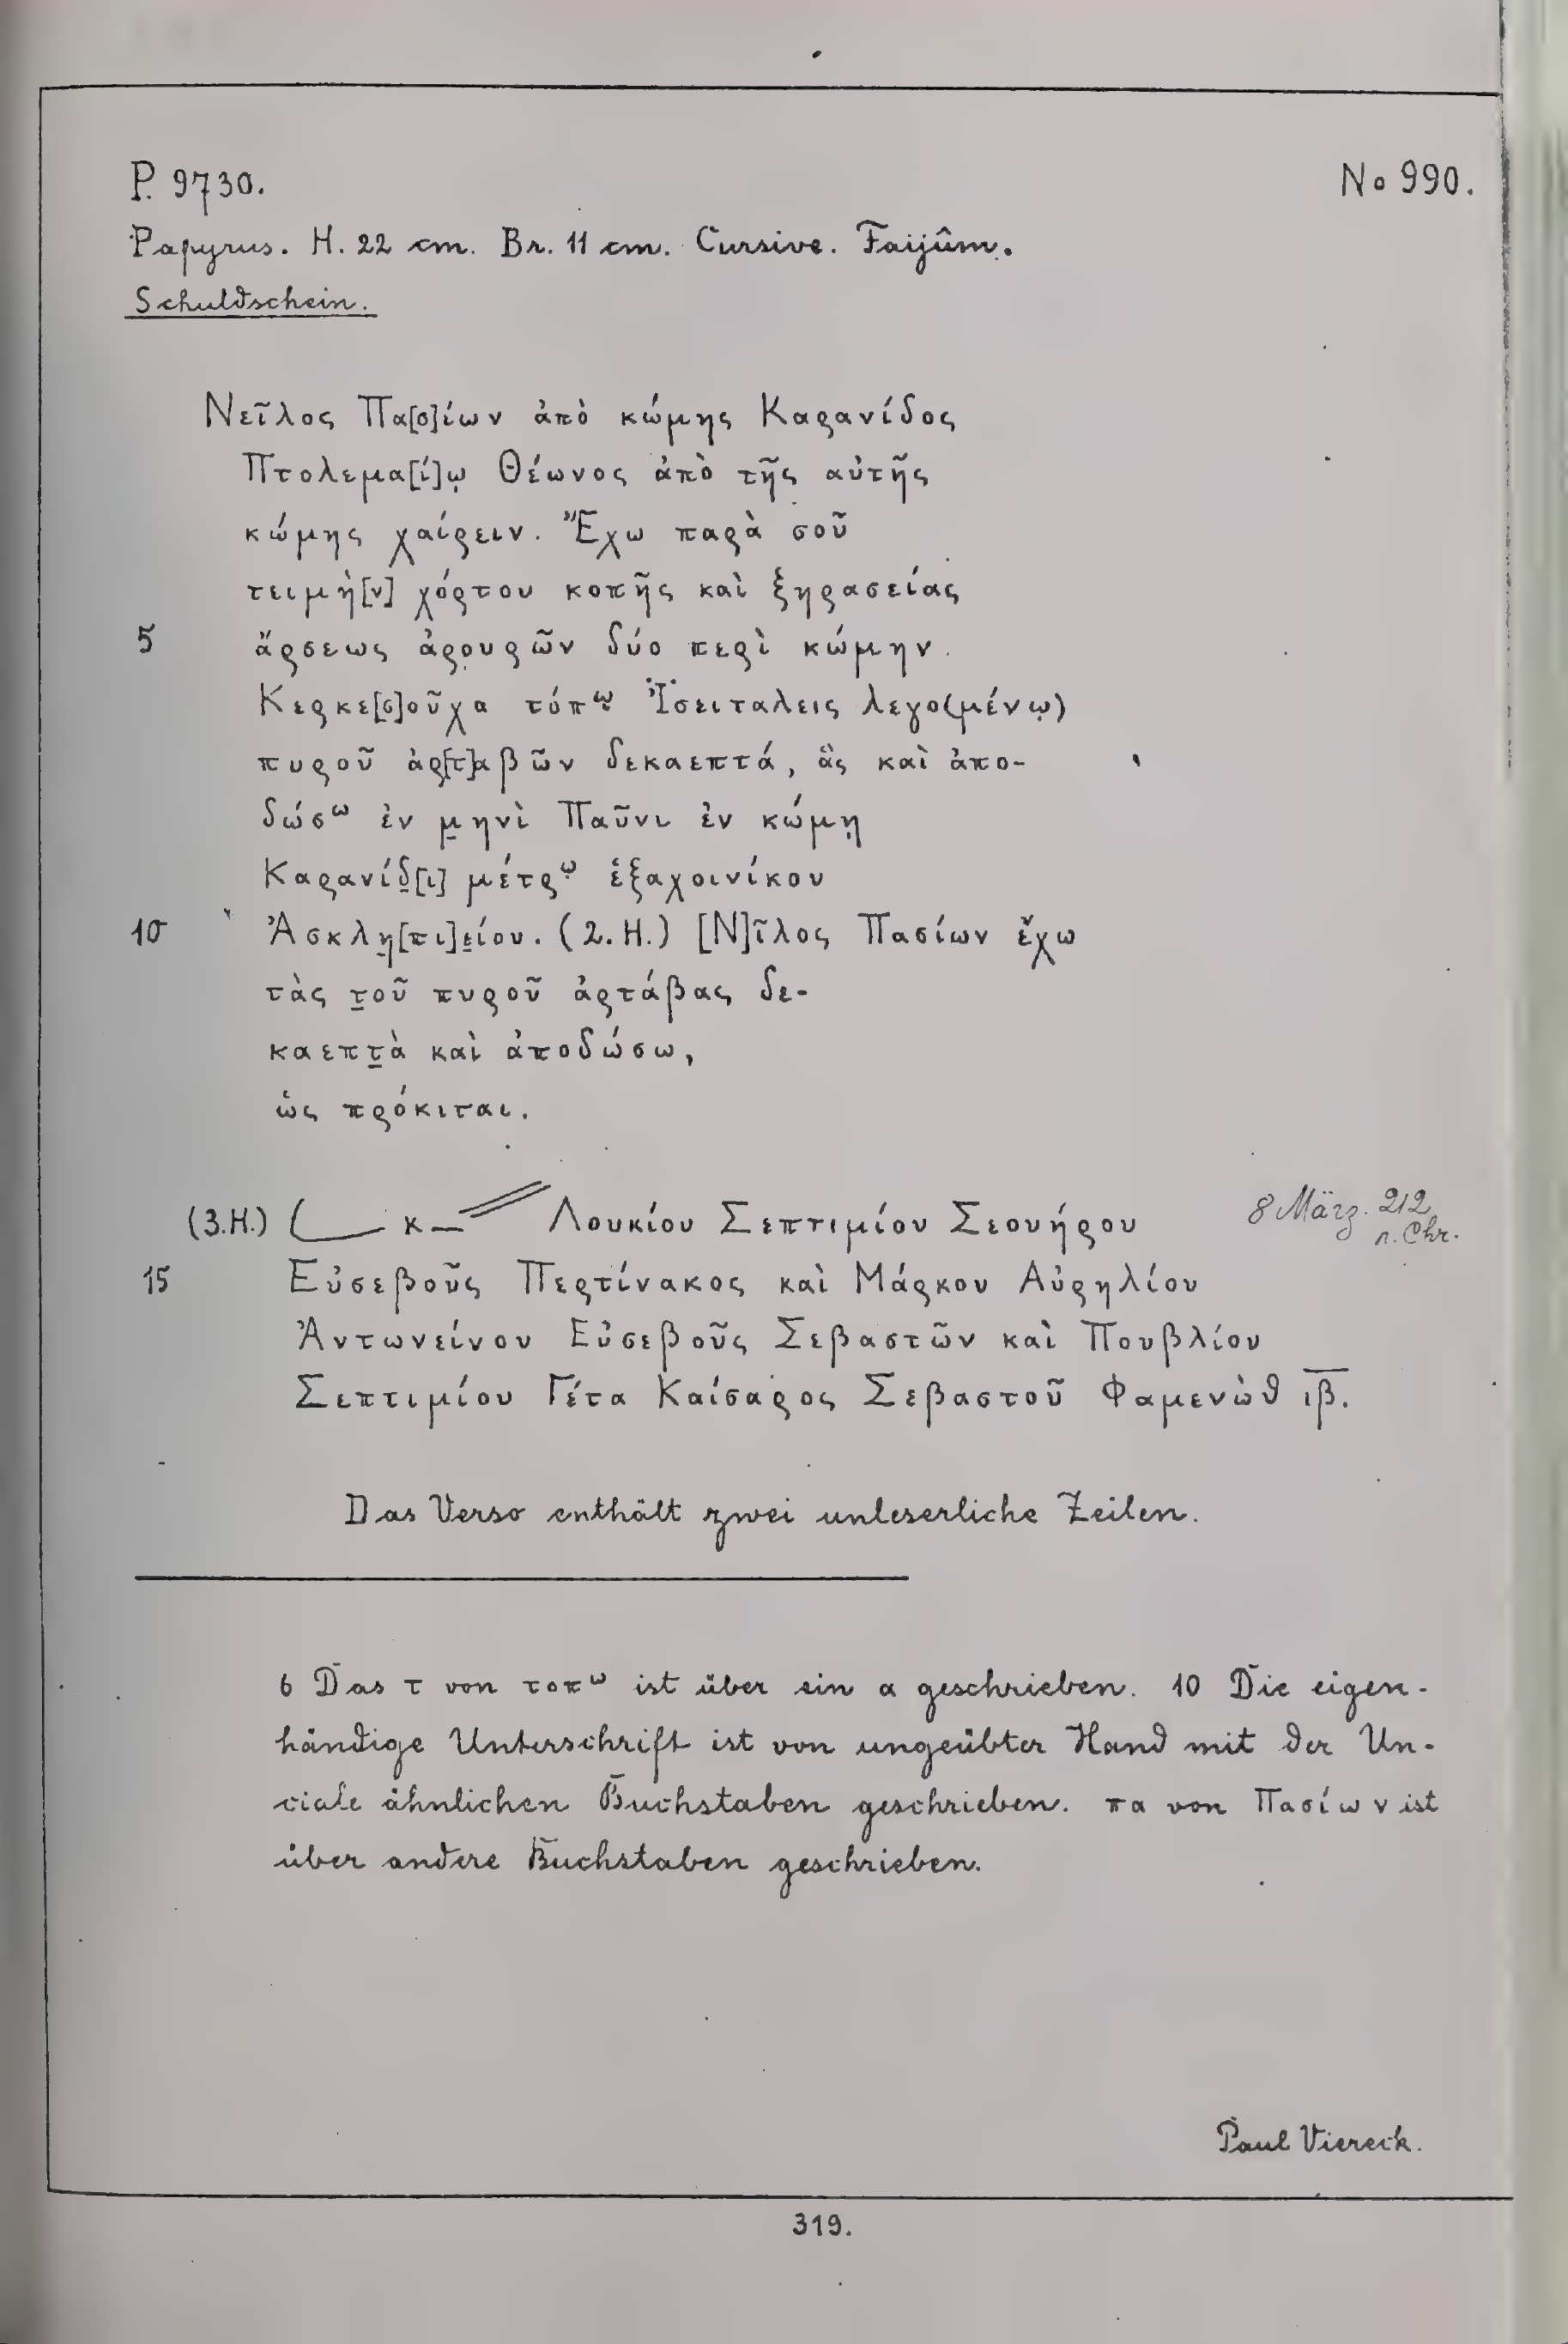 P. 9730. No 990.
Papyrus. H. 22 cm. Br. 11 cm. Cursive. Faijûm.
Schuldschein.
Νεῖλος Πα[σ]ίων ἀπὸ κώμης Καρανίδος
Πτολεμα[ί]ῳ Θέωνος ἀπὸ τῆς αὐτῆς
κώμης χαίρειν. Ἔχω παρὰ σοῦ
τειμὴ[ν] χόρτου κοπῆς καὶ ξηρασείας
5 ἄρσεως ἀρουρῶν δύο περὶ κώμην
Κερκε[σ]οῦχα τόπῳ Ἰ̈σειταλεις λεγο(μένῳ)
πυροῦ ἀρ[τ]αβῶν δεκαεπτά, ἃς καὶ ἀπο-
δώσω ἐν μ̣ηνὶ Παῦνι ἐν κώμῃ
Καρανίδ̣[ι] μέτρῳ ἑξαχοινίκου
10 Ἀσκλη̣[πι]ε̣ίου. (2. H.) [Ν]ῖλος Πασίων ἔχω
τὰς τ̣οῦ πυροῦ ἀρτάβας δε-
καεπτ̣ὰ καὶ ἀποδώσω,
ὡς πρόκιται.
(3.H.) L κ// Λουκίου Σεπτιμίου Σεουήρου 8 März. 212
n. Chr.
15 Εὐσεβοῦς Περτίνακος καὶ Μάρκου Αὐρηλίου
Ἀντωνείνου Εὐσεβοῦς Σεβαστῶν καὶ Πουβλίου
Σεπτιμίου Γέτα Καίσαρος Σεβαστοῦ Φαμενὼθ ι̅β̅.
Das Verso enthält zwei unleserliche Zeilen.
6 Das τ von τοπω ist über ein α geschrieben. 10 Die eigen-
händige Unterschrift ist von ungeübter Hand mit der Un-
ciale ähnlichen Buchstaben geschrieben. πα von Πασίων ist
über andere Buchstaben geschrieben.
Paul Viereck.
319.